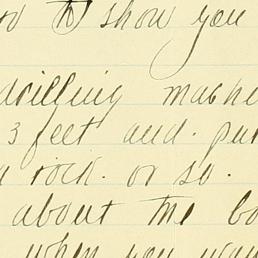 to show you
drilling mach
3 feet and. pu
a rock. or so.
about the bo
when you wan